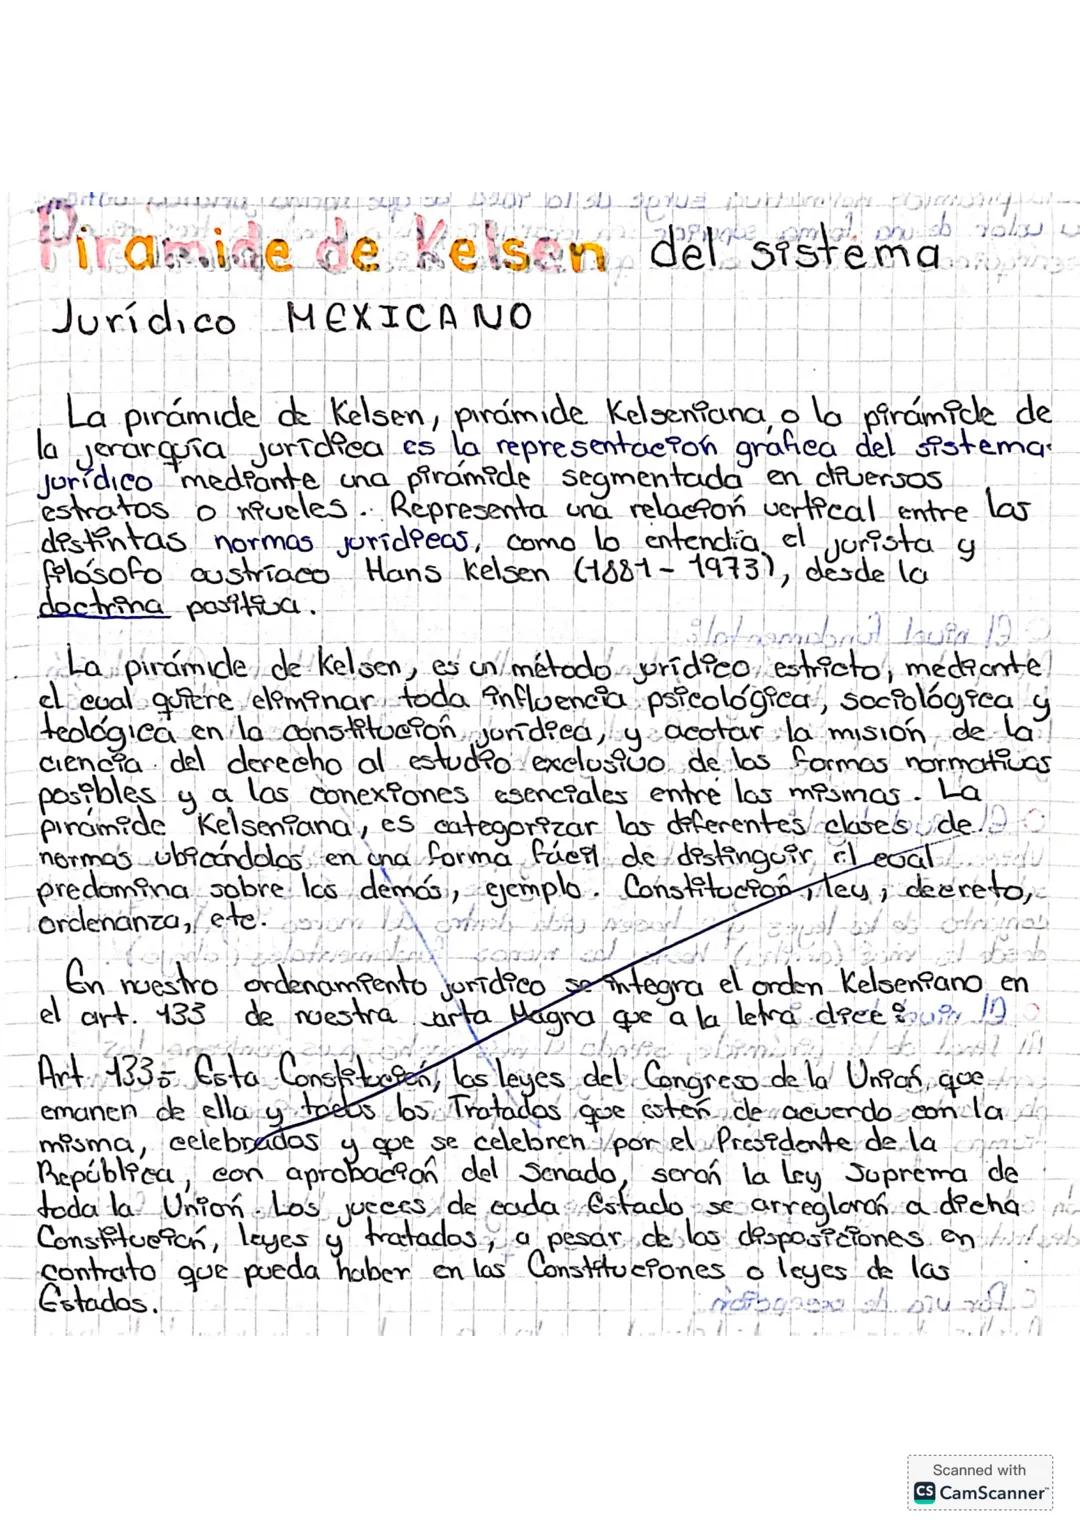 Piramide de Kelsen del sistema
Jurídico MEXICANO
La pirámide de Kelsen, pirámide Kelseniana o la pirámide de
la jerarquía jurídica es la representación gráfica del sistema
jurídico mediante una pirámide segmentada en diversos
estratos o niveles. Representa una relación vertical entre las
distintas normas jurídicas, como lo entendía el jurista y
filósofo austríaco Hans Kelsen (1881-1973), desde la
doctrina positiva.
La pirámide de Kelsen, es un método jurídico estricto, mediante
el cual quiere eliminar toda influencia psicológica, sociológica y
teológica en la constitución jurídica, y acotar la misión de la
ciencia del derecho al estudio exclusivo de las formas normativas
posibles y a las conexiones esenciales entre las mismas. La
pirámide Kelseniana, es categorizar las diferentes clases de
normas ubicándolas en una forma fácil de distinguir el cual
predomina sobre las demás, ejemplo. Constitución, ley, decreto,
ordenanza, etc.
En nuestro ordenamiento jurídico se integra el orden Kelseniano en
el art. 133 de nuestra carta Magna que a la letra dice:
Art. 133.- Esta Constitución, las leyes del Congreso de la Unión que
emanen de ella y todos los Tratados que estén de acuerdo con la
misma, celebrados y que se celebren por el Presidente de la
República, con aprobación del Senado, serán la Ley Suprema de
toda la Unión. Los jueces de cada Estado se arreglarán a dicha
Constitución, leyes y tratados, a pesar de las disposiciones en
contrato que pueda haber en las Constituciones o leyes de las
Estados.
Scanned with
CS CamScanner